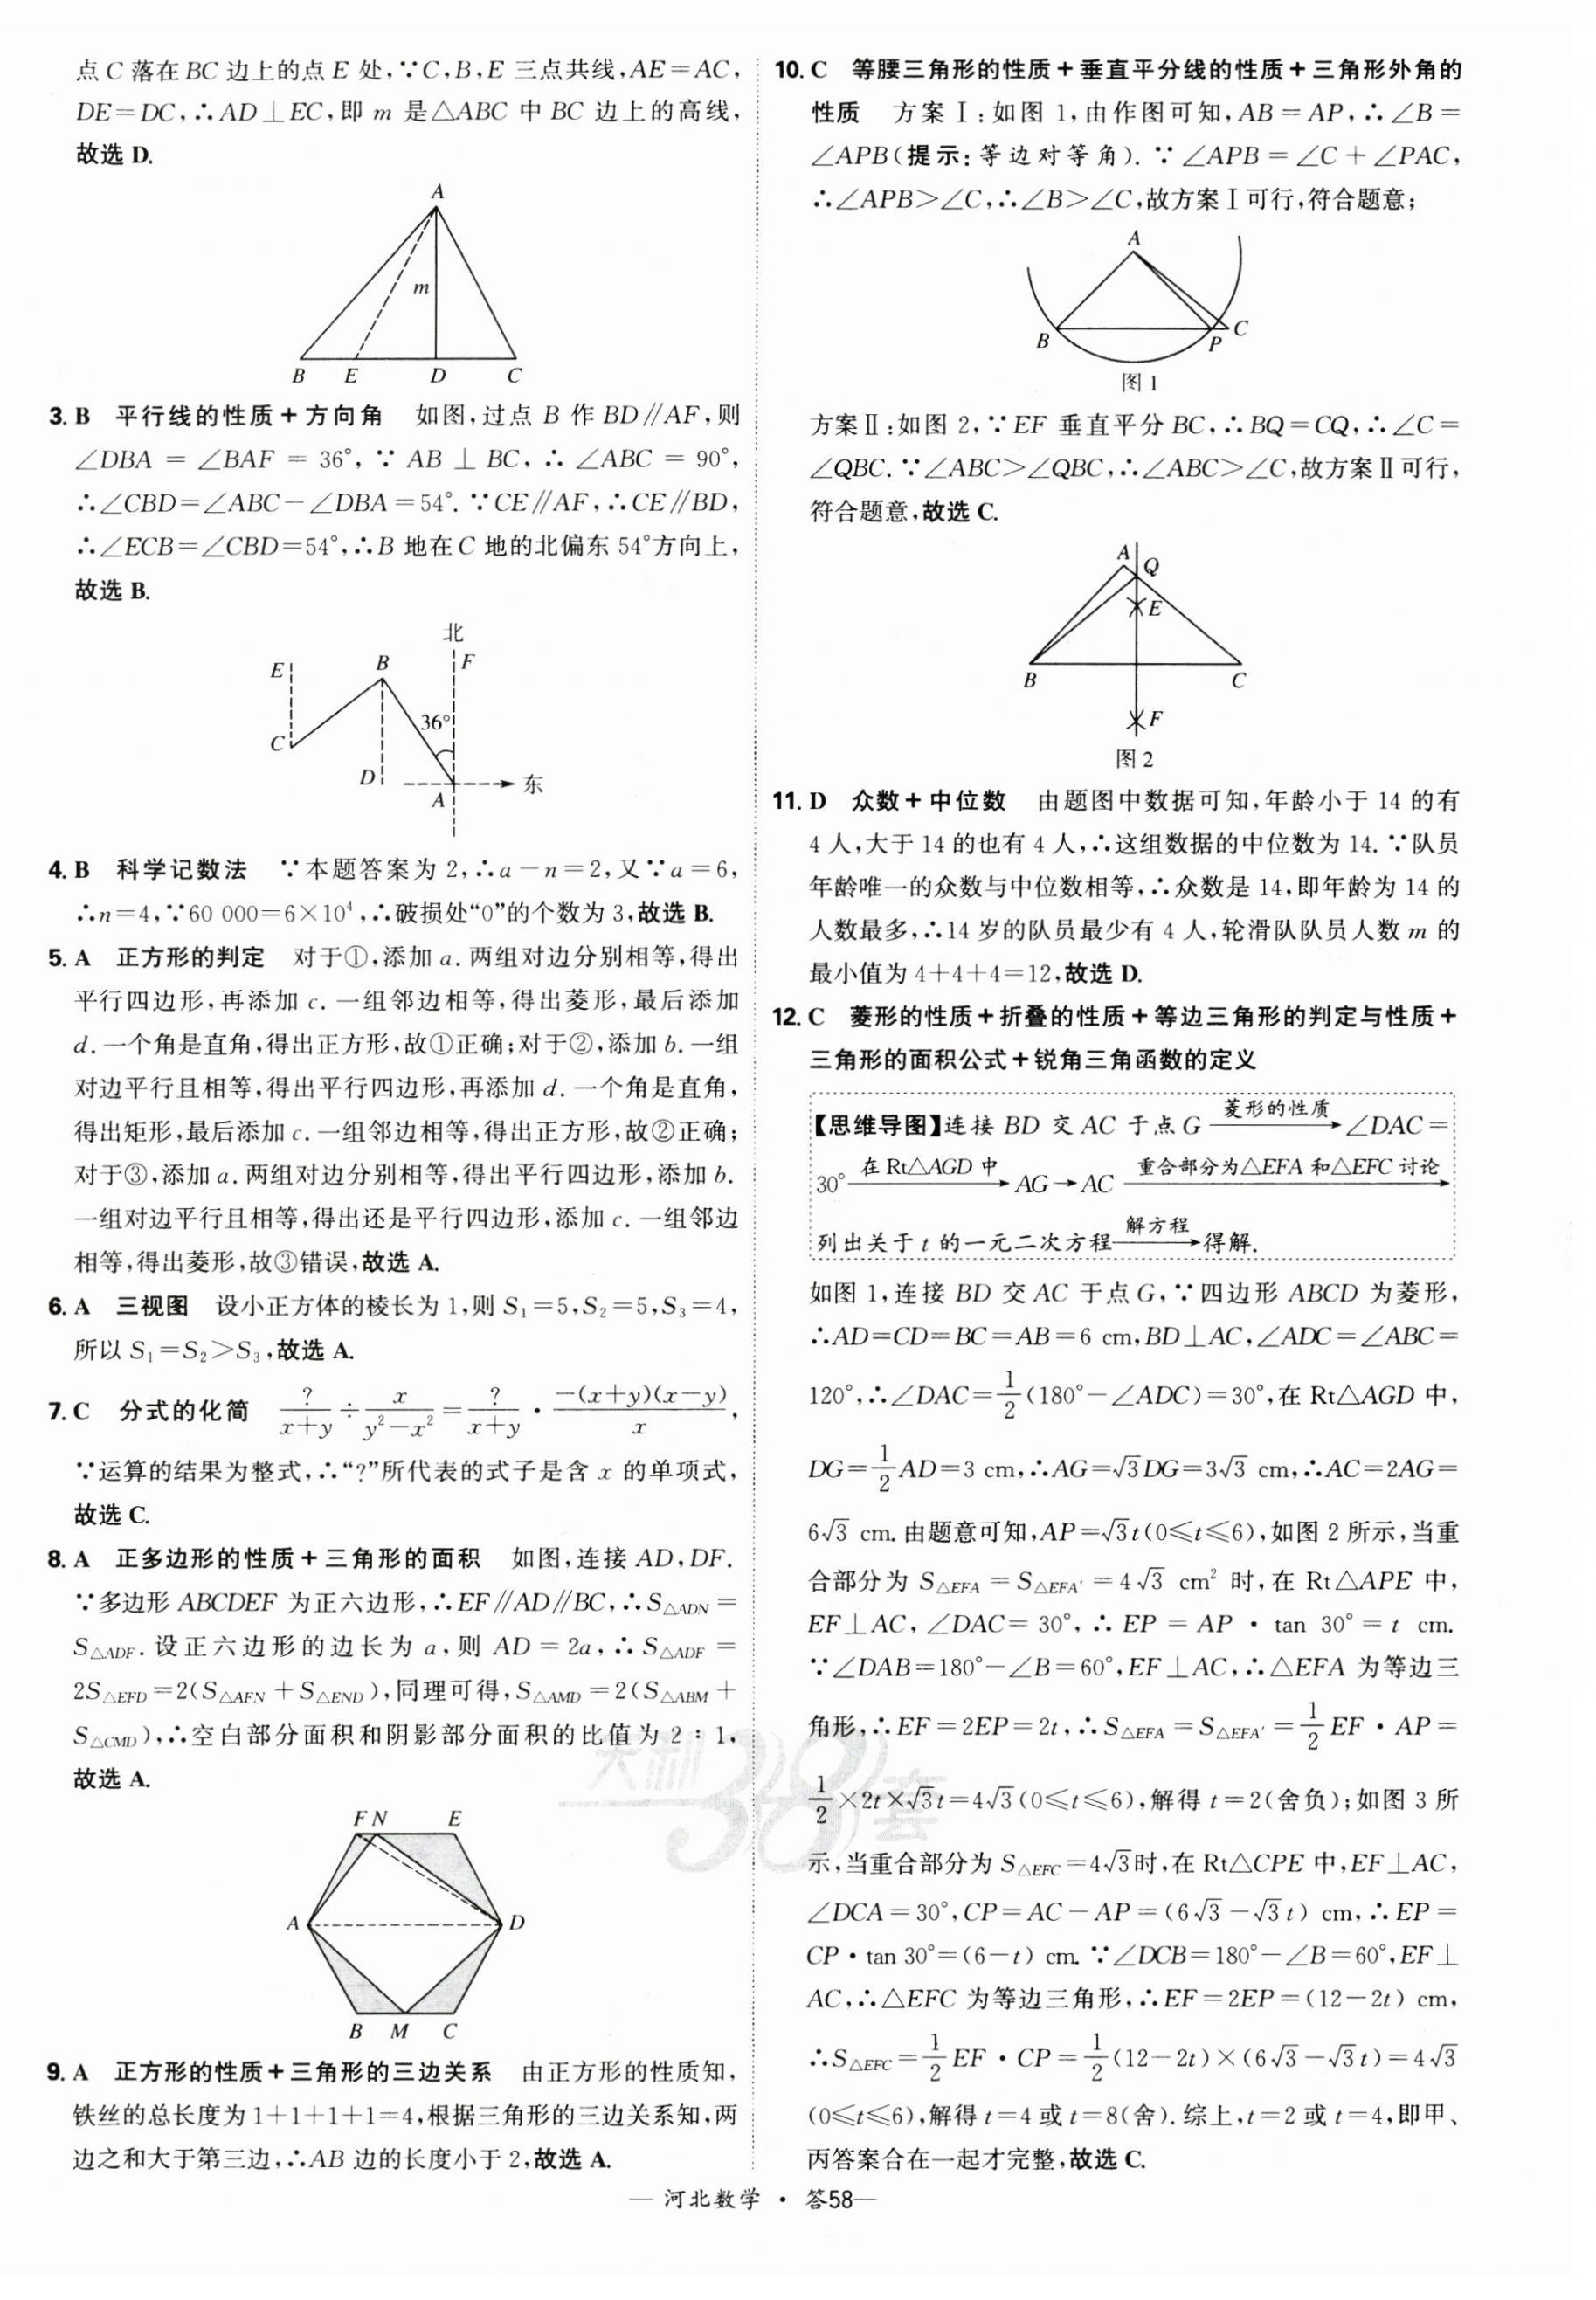 点C落在BC边上的点E处,∵C,B,E三点共线,AE=AC,
DE=DC,∴AD⊥EC,即m是△ABC中BC边上的高线,
故选D.
A
m
B E D C
3. B 平行线的性质+方向角 如图,过点B作BD∥AF,则
∠DBA=∠BAF=36°,∵AB⊥BC,∴∠ABC=90°,
∴∠CBD=∠ABC-∠DBA=54°.∵CE∥AF,∴CE∥BD,
∴∠ECB=∠CBD=54°,∴B地在C地的北偏东54°方向上,
故选B.
北
E B F
36°
C
D 东
A
4. B 科学记数法 ∵本题答案为2,∴a-n=2,又∵a=6,
∴n=4,∵60 000=6×10⁴,∴破损处“0”的个数为3,故选B.
5. A 正方形的判定 对于①,添加a.两组对边分别相等,得出
平行四边形,再添加c.一组邻边相等,得出菱形,最后添加
d.一个角是直角,得出正方形,故①正确;对于②,添加b.一组
对边平行且相等,得出平行四边形,再添加d.一个角是直角,
得出矩形,最后添加c.一组邻边相等,得出正方形,故②正确;
对于③,添加a.两组对边分别相等,得出平行四边形,添加b.
一组对边平行且相等,得出还是平行四边形,添加c.一组邻边
相等,得出菱形,故③错误,故选A.
6. A 三视图 设小正方体的棱长为1,则S₁=5,S₂=5,S₃=4,
所以S₁=S₂>S₃,故选A.
7. C 分式的化简 ?/(x+y)÷x/(y²-x²)=?/(x+y)·-(x+y)(x-y)/x,
∵运算的结果为整式,∴“?”所代表的式子是含x的单项式,
故选C.
8. A 正多边形的性质+三角形的面积 如图,连接AD,DF.
∵多边形ABCDEF为正六边形,∴EF∥AD∥BC,∴S△ADN=
S△ADF.设正六边形的边长为a,则AD=2a,∴S△ADF=
2S△EFD=2(S△AFN+S△END),同理可得,S△AMD=2(S△ABM+
S△CMD),∴空白部分面积和阴影部分面积的比值为2:1,
故选A.
F N E
A D
B M C
9. A 正方形的性质+三角形的三边关系 由正方形的性质知,
铁丝的总长度为1+1+1+1=4,根据三角形的三边关系知,两
边之和大于第三边,∴AB边的长度小于2,故选A.
10. C 等腰三角形的性质+垂直平分线的性质+三角形外角的
性质 方案Ⅰ:如图1,由作图可知,AB=AP,∴∠B=
∠APB(提示:等边对等角).∵∠APB=∠C+∠PAC,
∴∠APB>∠C,∴∠B>∠C,故方案Ⅰ可行,符合题意;
A
B P C
图1
方案Ⅱ:如图2,∵EF垂直平分BC,∴BQ=CQ,∴∠C=
∠QBC.∵∠ABC>∠QBC,∴∠ABC>∠C,故方案Ⅱ可行,
符合题意,故选C.
A Q
E
B C
F
图2
11. D 众数+中位数 由题图中数据可知,年龄小于14的有
4人,大于14的也有4人,∴这组数据的中位数为14.∵队员
年龄唯一的众数与中位数相等,∴众数是14,即年龄为14的
人数最多,∴14岁的队员最少有4人,轮滑队队员人数m的
最小值为4+4+4=12,故选D.
12. C 菱形的性质+折叠的性质+等边三角形的判定与性质+
三角形的面积公式+锐角三角函数的定义
【思维导图】连接BD交AC于点G 菱形的性质→ ∠DAC=
30° 在Rt△AGD中→ AG→AC 重合部分为△EFA和△EFC讨论→
列出关于t的一元二次方程 解方程→ 得解.
如图1,连接BD交AC于点G,∵四边形ABCD为菱形,
∴AD=CD=BC=AB=6 cm,BD⊥AC,∠ADC=∠ABC=
120°,∴∠DAC=1/2(180°-∠ADC)=30°,在Rt△AGD中,
DG=1/2AD=3 cm,∴AG=√3DG=3√3 cm,∴AC=2AG=
6√3 cm.由题意可知,AP=√3t(0≤t≤6),如图2所示,当重
合部分为S△EFA=S△EFA′=4√3 cm²时,在Rt△APE中,
EF⊥AC,∠DAC=30°,∴EP=AP·tan 30°=t cm.
∵∠DAB=180°-∠B=60°,EF⊥AC,∴△EFA为等边三
角形,∴EF=2EP=2t,∴S△EFA=S△EFA′=1/2EF·AP=
1/2×2t×√3t=4√3(0≤t≤6),解得t=2(舍负);如图3所
示,当重合部分为S△EFC=4√3时,在Rt△CPE中,EF⊥AC,
∠DCA=30°,CP=AC-AP=(6√3-√3t) cm,∴EP=
CP·tan 30°=(6-t) cm.∵∠DCB=180°-∠B=60°,EF⊥
AC,∴△EFC为等边三角形,∴EF=2EP=(12-2t) cm,
∴S△EFC=1/2EF·CP=1/2(12-2t)×(6√3-√3t)=4√3
(0≤t≤6),解得t=4或t=8(舍).综上,t=2或t=4,即甲、
丙答案合在一起才完整,故选C.
天利38套
— 河北数学·答58—